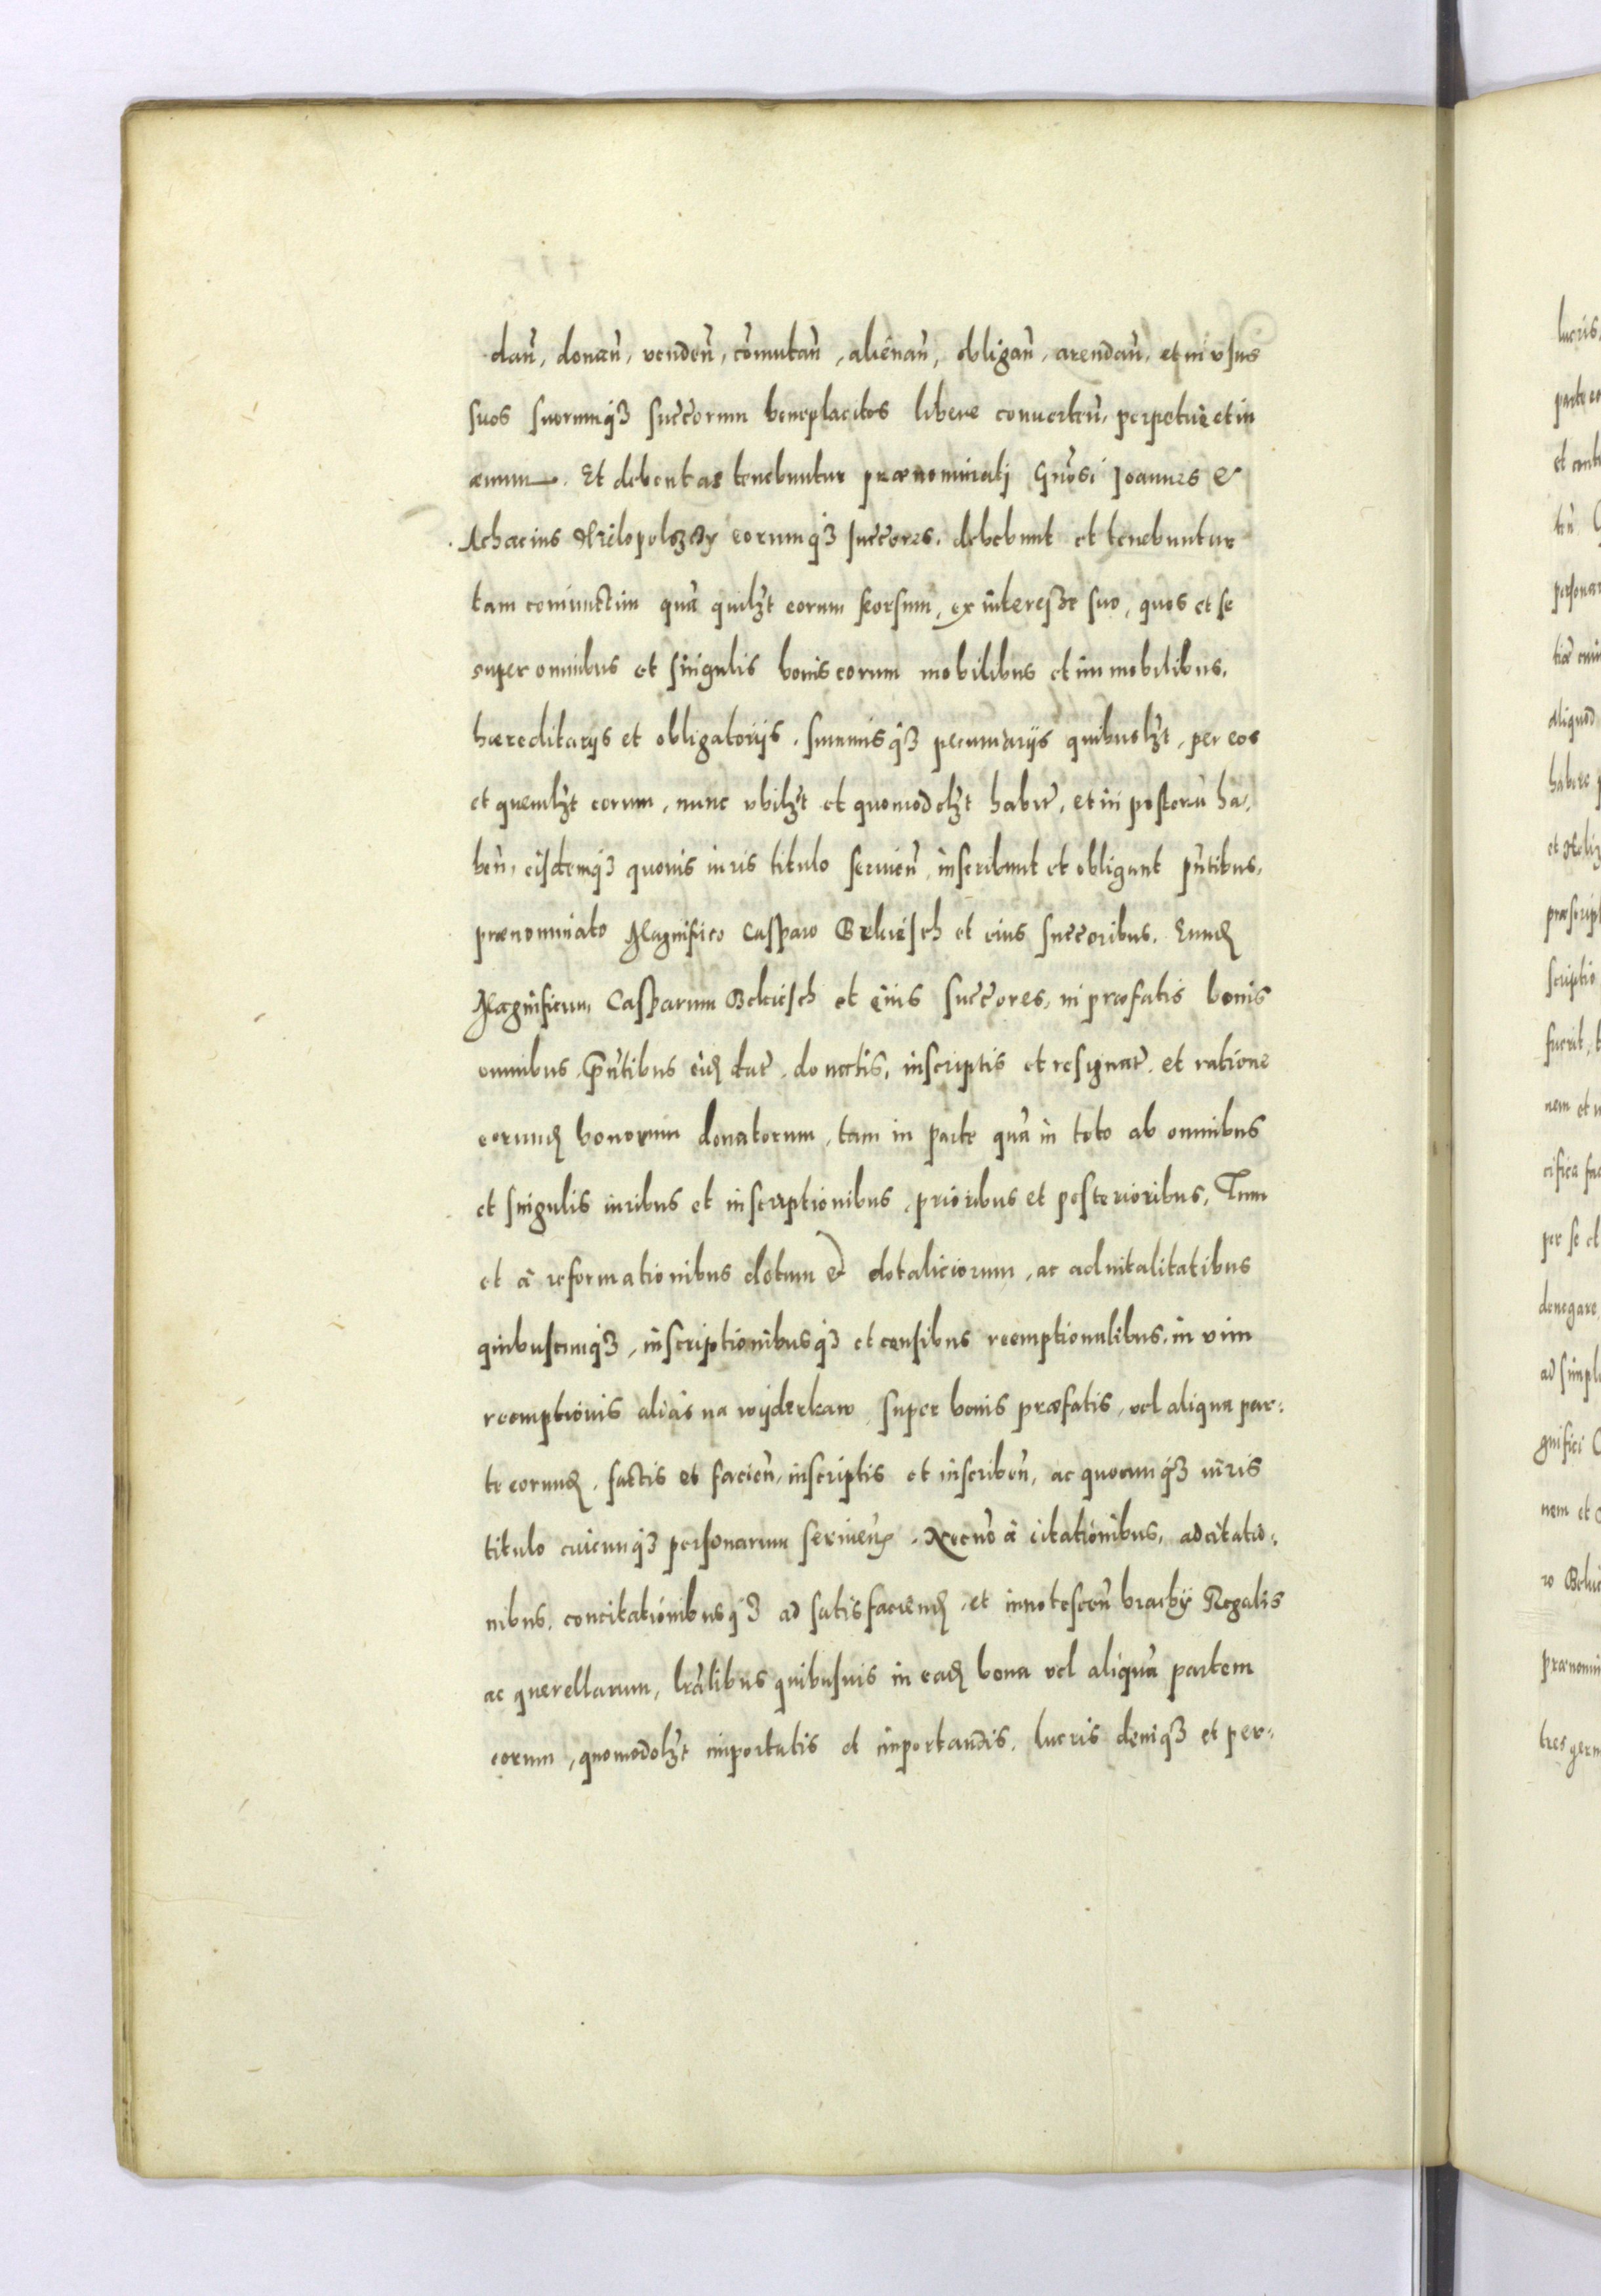 dan̄, donan̄, venden̄, com̄utan̄, alienan̄, obligan̄, arendan̄, et in usus
suos suorumq̃ȝ succ̄orum beneplacitos libere converten̄, perpetuè et in
ævum. Et debent ac tenebuntur prænominati Gn̄osi Joannes &
Achacius eorumq̃ȝ succ̄ores, debebunt et tenebuntur
tam coniunctim quā quilȝt eorum seorsum, ex interesse suo, quos et se
super omnibus et singulis bonis eorum mobilibus et immobilibus,
hæreditarijs et obligatorijs, summisq̃ȝ pecuniarijs quibuslȝt, per eos
et quemlȝt eorum, nunc ubilȝt et quomodolȝt habit̄, et in posterū ha-
ben̄, eisdemq̃ȝ quovis iuris titulo servien̄, inscribunt et obligant pn̄tibus,
prænominato Magnifico Casparo Bekiesch et eius succ̄oribus. Eund̄
Magnificum Casparum Bekiesch et eius succ̄ores, in præfatis bonis
omnibus, pn̄tibus eid̄ dat̄, donatis, inscriptis et resignat̄, et ratione
eorund̄ bonorum donatorum, tam in parte quā in toto ab omnibus
et singulis iuribus et inscriptionibus, prioribus et posterioribus, Tum
et à reformationibus dotum & dotaliciorum, ac advitalitatibus
quibuscunq̃ȝ, inscriptionibusq̃ȝ et censibus reemptionalibus, in vim
reemptionis aliàs na wyderkaw, super bonis præfatis, vel aliqua par-
te eorund̄, factis et facien̄, inscriptis et inscriben̄, ac quocunq̃ȝ iuris
titulo cuicunq̃ȝ personarum servien̄, Necno à citationibus, adcitatio-
nibus, concitationibusq̃ȝ ad satisfaciend̄, et innotescen̄ brachij Regalis
ac querellarum, lr̄alibus quibusvis in ead̄ bona vel aliquā partem
eorum, quomodolȝt importatis et importandis, lucris deniq̃ȝ et per-